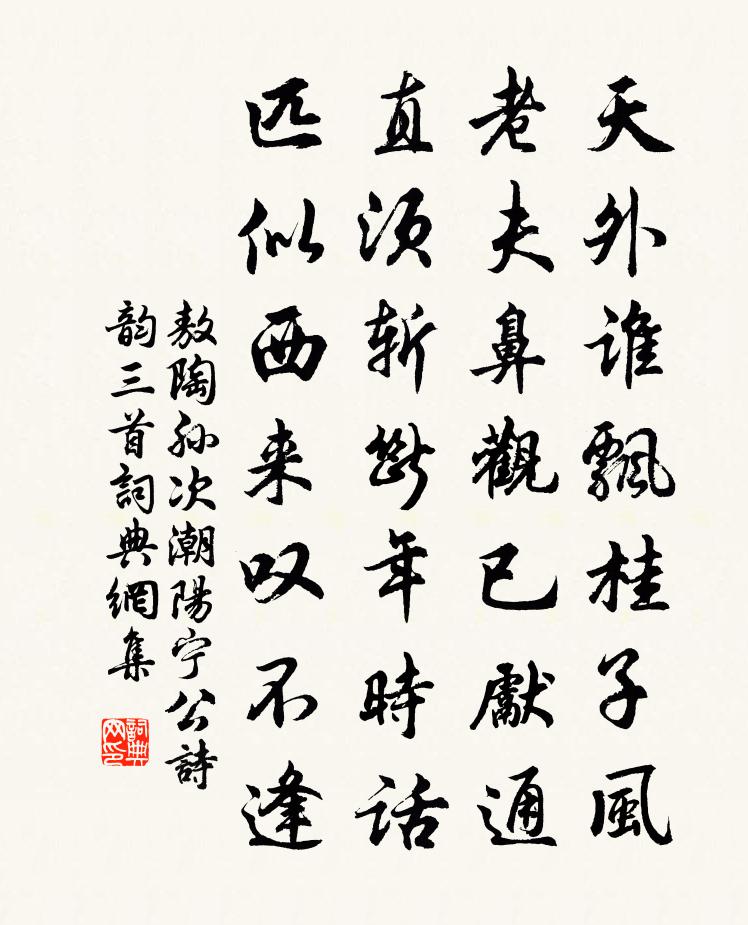 天外谁飄桂子風
老夫鼻觀已獻通
直須斩斷年時話
匹似西来叹不逢
敖陶孙次潮陽宁公詩
韵三首詞典網集
詞典网印